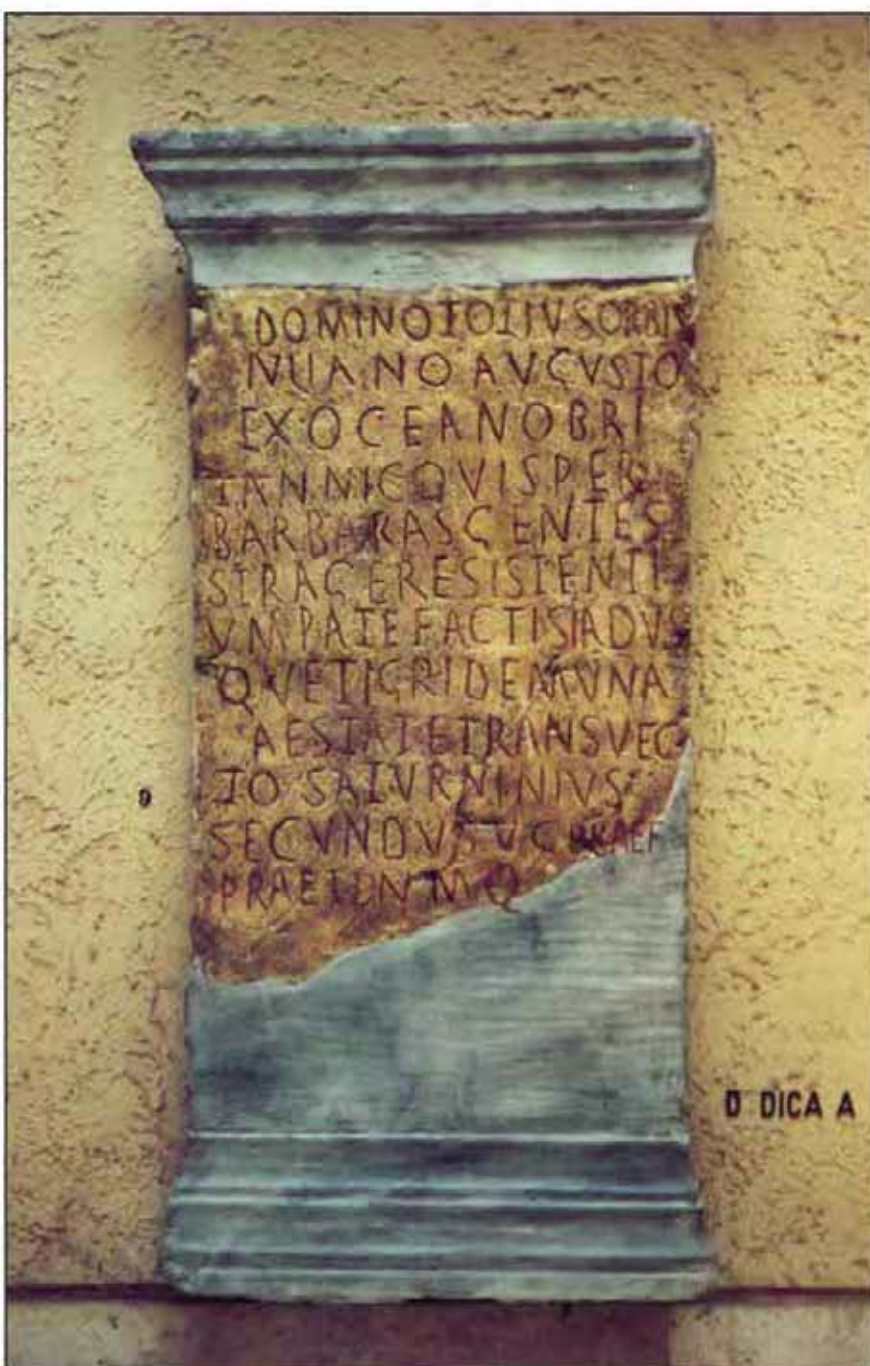 DOMINO TOTIVS ORBIS
IVLIANO AVGVSTO
EX OCEANO BRI
TANNICO VIS PER
BARBARAS GENTES
STRAGE RESISTENTI
VM PATEFACTIS ADVS
QVE TIGRIDEM VNA
AESTATE TRANSVEC
TO SATVRNINIVS
SECVNDVS V C PRAEF
PRAET D N M Q
9
D DICA A